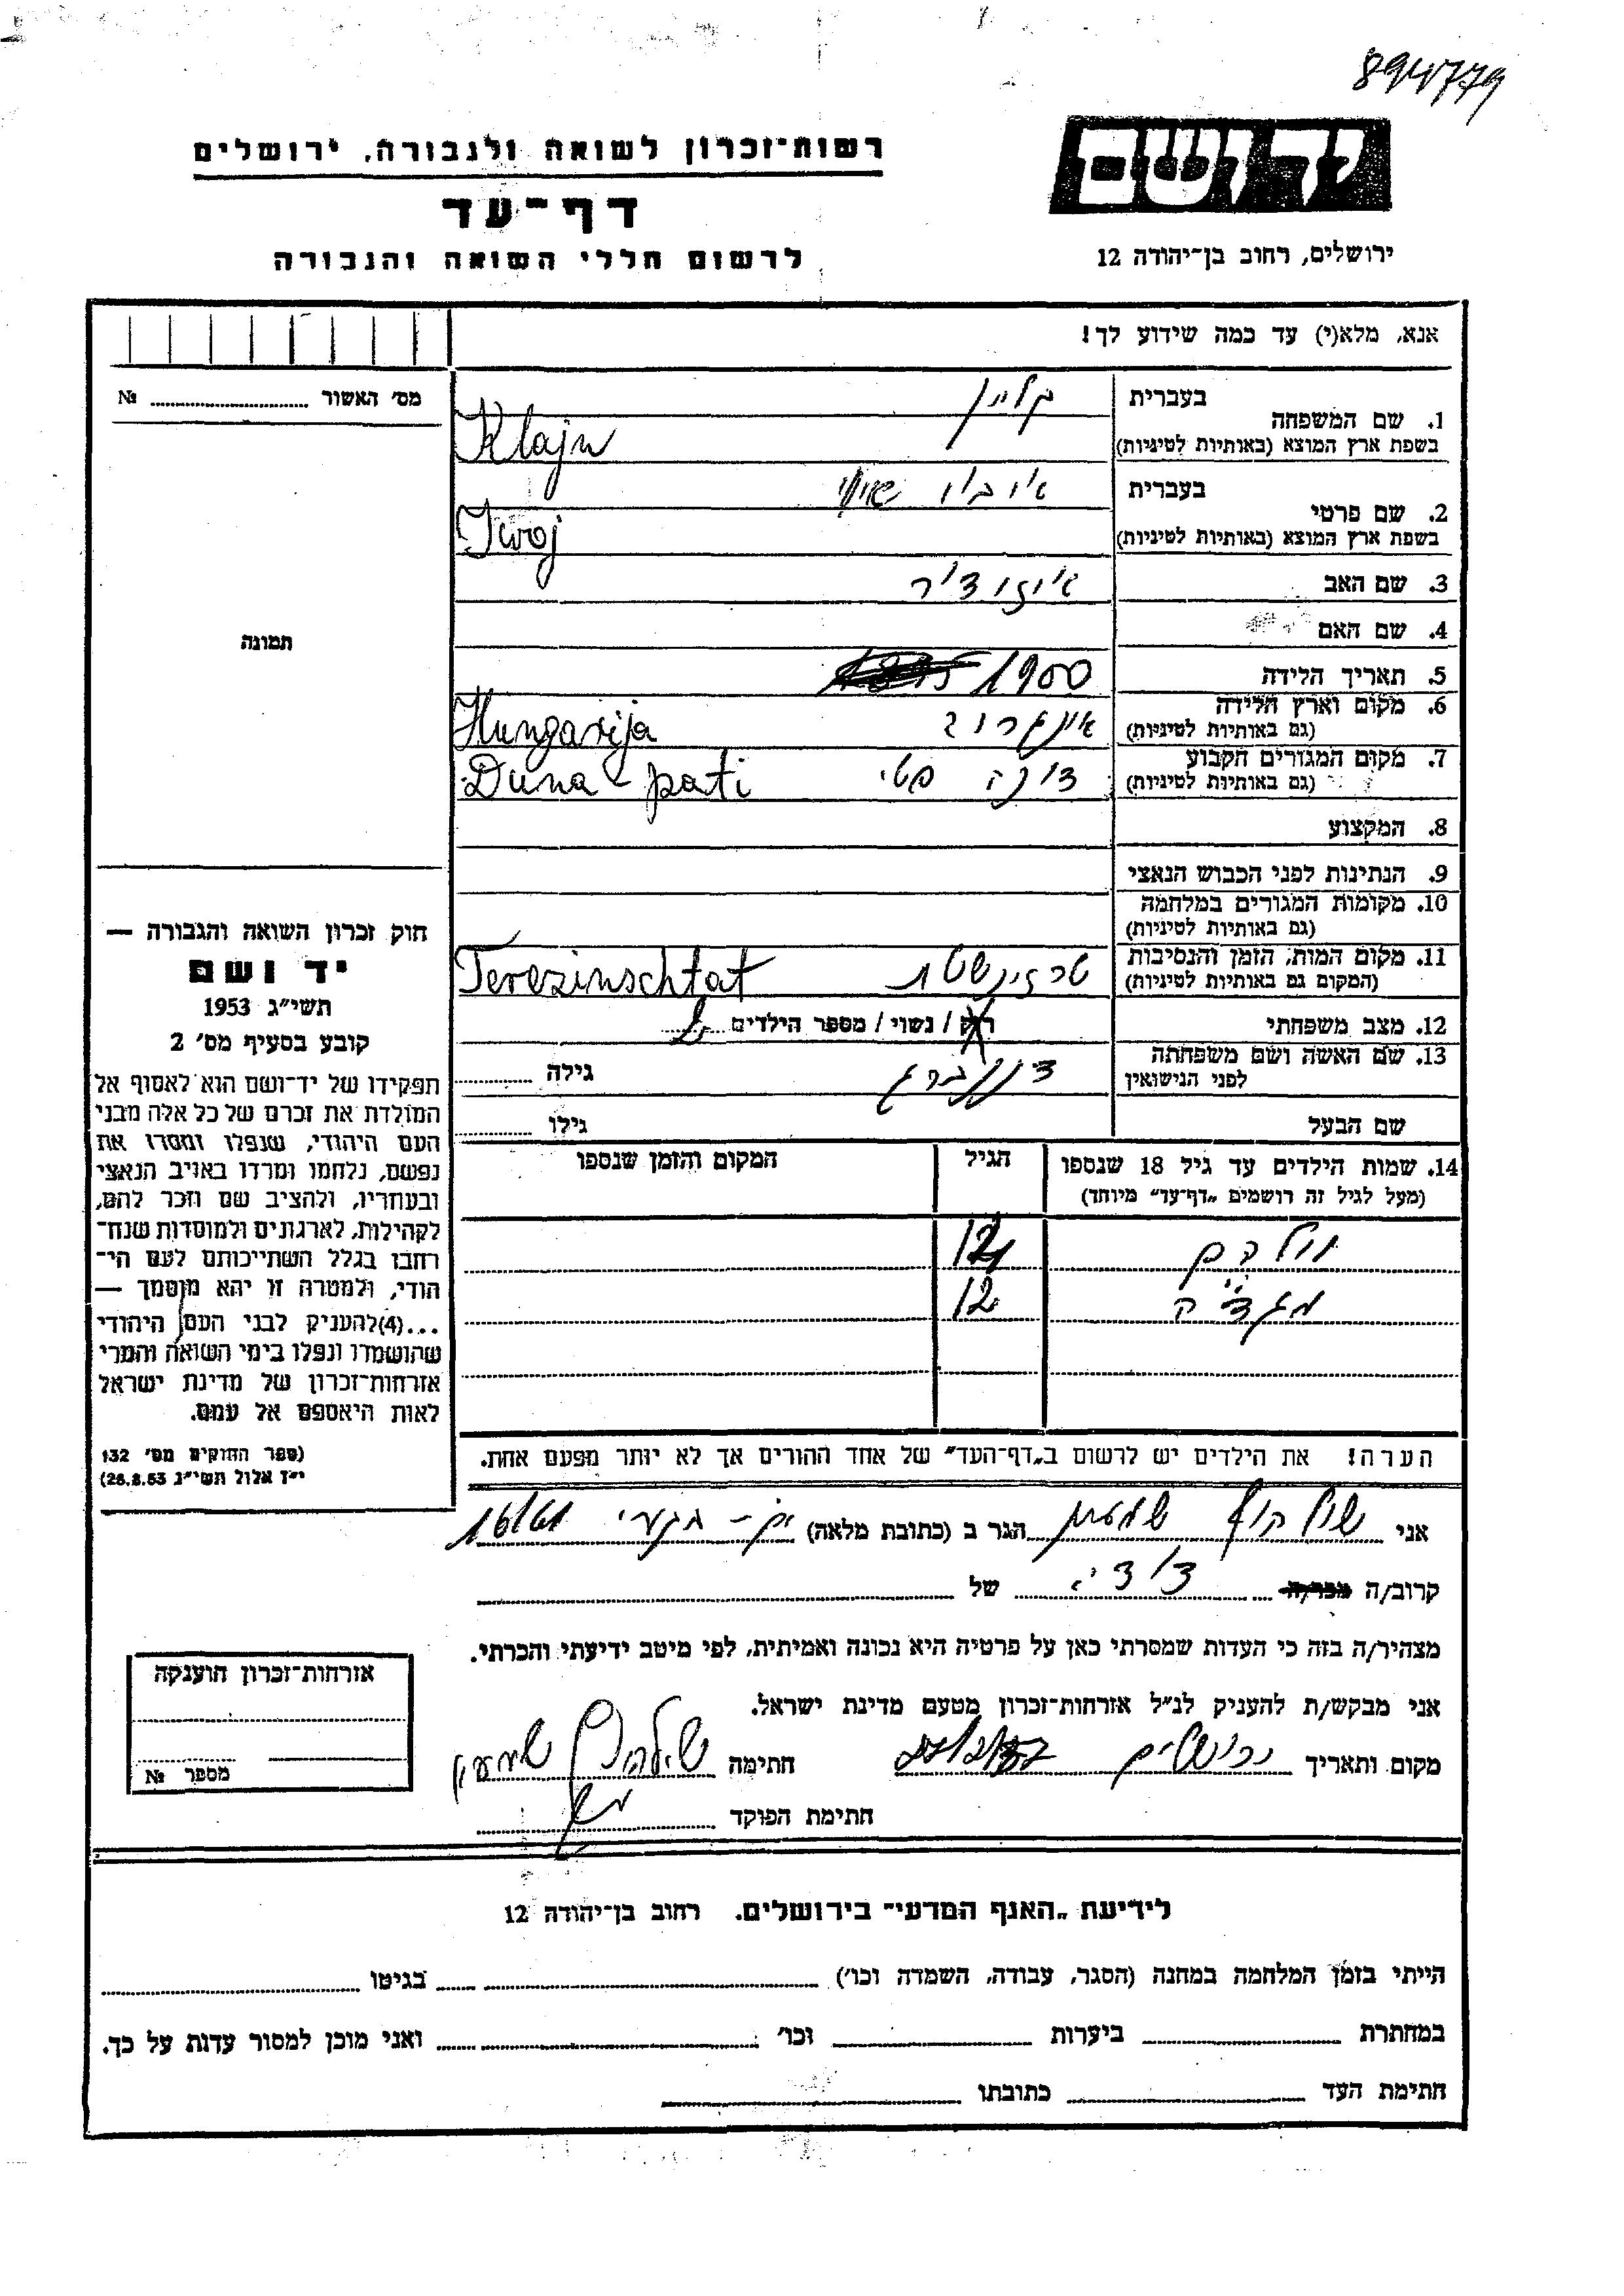 894779
רשות־זכרון לשואה ולגבורה, ירושלים
יד ושם
דף־עד
לרשום חללי השואה והגבורה
ירושלים, רחוב בן־יהודה 12
אנא, מלא(י) עד כמה שידוע לך!
מס׳ האשור № 
1. שם המשפחה
בעברית קליין
בשפת ארץ המוצא (באותיות לטיניות) Klajn
2. שם פרטי
בעברית
בשפת ארץ המוצא (באותיות לטיניות) Jwoj
3. שם האב
4. שם האם
5. תאריך הלידה 1900
6. מקום וארץ הלידה
(גם באותיות לטיניות) Hungarija
7. מקום המגורים הקבוע דונה פטי
(גם באותיות לטיניות) Duna-pati
8. המקצוע
9. הנתינות לפני הכבוש הנאצי
10. מקומות המגורים במלחמה
(גם באותיות לטיניות)
11. מקום המות, הזמן והנסיבות טרזינשטט
(המקום גם באותיות לטיניות) Terezinschtat
12. מצב משפחתי רוק / נשוי / מספר הילדים 2
13. שם האשה ושם משפחתה
לפני הנישואין גילה
שם הבעל גילו
14. שמות הילדים עד גיל 18 שנספו
(מעל לגיל זה רושמים „דף־עד״ מיוחד)
הגיל
המקום והזמן שנספו
12
12
הערה! את הילדים יש לרשום ב„דף־העד״ של אחד ההורים אך לא יותר מפעם אחת.
תמונה
חוק זכרון השואה והגבורה —
יד ושם
תשי״ג 1953
קובע בסעיף מס׳ 2
תפקידו של יד־ושם הוא לאסוף אל
המולדת את זכרם של כל אלה מבני
העם היהודי, שנפלו ומסרו את
נפשם, נלחמו ומרדו באויב הנאצי
ובעוזריו, ולהציב שם וזכר להם,
לקהילות, לארגונים ולמוסדות שנח־
רחבו בגלל השתייכותם לעם הי־
הודי, ולמטרה זו יהא מוסמך —
...(4)להעניק לבני העם היהודי
שהושמדו ונפלו בימי השואה והמרי
אזרחות־זכרון של מדינת ישראל
לאות היאספם אל עמם.
(ספר החוקים מס׳ 132
י״ז אלול תשי״ג 26.8.53)
אני הגר ב (כתובת מלאה)
קרוב/ה מכר/ה דודי של
מצהיר/ה בזה כי העדות שמסרתי כאן על פרטיה היא נכונה ואמיתית, לפי מיטב ידיעתי והכרתי.
אני מבקש/ת להעניק לנ״ל אזרחות־זכרון מטעם מדינת ישראל.
מקום ותאריך ירושלים חתימה
חתימת הפוקד
אזרחות־זכרון הוענקה
מספר №
לידיעת „האגף המדעי״ בירושלים. רחוב בן־יהודה 12
הייתי בזמן המלחמה במחנה (הסגר, עבודה, השמדה וכו׳) בגיטו
במחתרת ביערות וכו׳ ואני מוכן למסור עדות על כך.
חתימת העד כתובתו